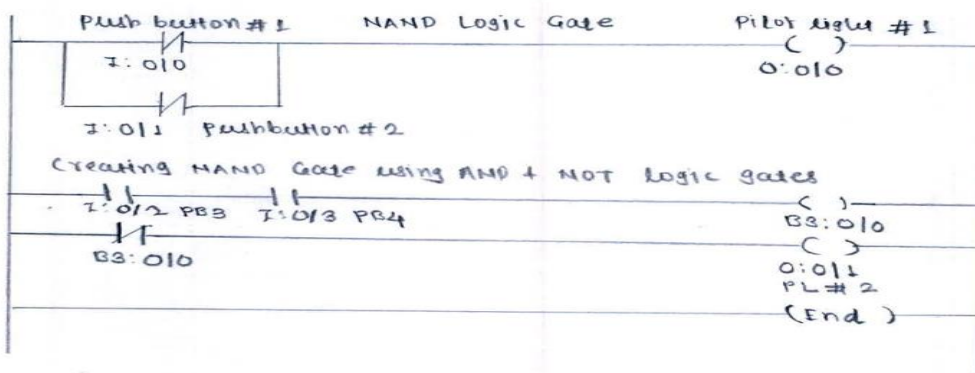 Push button # 1 NAND Logic Gate Pilot light # 1
I:0/0 O:0/0
I:0/1 Pushbutton # 2
Creating NAND Gate using AND + NOT logic gates
I:0/2 PB3 I:0/3 PB4 B3:0/0
B3:0/0 O:0/1
PL # 2
(End)